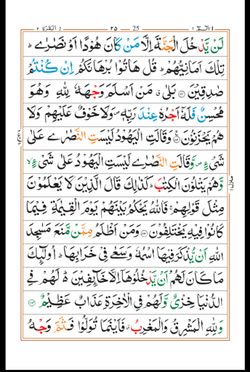 الٓمّٓ ١ 25 ٢٥ اَلْبَقَرَة ٢
لَنْ يَّدْخُلَ الْجَنَّةَ اِلَّا مَنْ كَانَ هُوْدًا اَوْ نَصٰرٰى ؕ
تِلْكَ اَمَانِيُّهُمْ ؕ قُلْ هَاتُوْا بُرْهَانَكُمْ اِنْ كُنْتُمْ
صٰدِقِيْنَ ۝ بَلٰى ۗ مَنْ اَسْلَمَ وَجْهَهٗ لِلّٰهِ وَهُوَ
مُحْسِنٌ فَلَهٗۤ اَجْرُهٗ عِنْدَ رَبِّهٖ ۪ وَلَا خَوْفٌ عَلَيْهِمْ وَلَا
هُمْ يَحْزَنُوْنَ ۝ وَقَالَتِ الْيَهُوْدُ لَيْسَتِ النَّصٰرٰى عَلٰى
شَيْءٍ ۪ وَّقَالَتِ النَّصٰرٰى لَيْسَتِ الْيَهُوْدُ عَلٰى شَيْءٍ ۙ
وَّهُمْ يَتْلُوْنَ الْكِتٰبَ ؕ كَذٰلِكَ قَالَ الَّذِيْنَ لَا يَعْلَمُوْنَ
مِثْلَ قَوْلِهِمْ ۚ فَاللّٰهُ يَحْكُمُ بَيْنَهُمْ يَوْمَ الْقِيٰمَةِ فِيْمَا
كَانُوْا فِيْهِ يَخْتَلِفُوْنَ ۝ وَمَنْ اَظْلَمُ مِمَّنْ مَّنَعَ مَسٰجِدَ
اللّٰهِ اَنْ يُّذْكَرَ فِيْهَا اسْمُهٗ وَسَعٰى فِيْ خَرَابِهَا ؕ اُولٰٓئِكَ
مَا كَانَ لَهُمْ اَنْ يَّدْخُلُوْهَاۤ اِلَّا خَآئِفِيْنَ ؕ لَهُمْ فِي
الدُّنْيَا خِزْيٌ وَّلَهُمْ فِي الْاٰخِرَةِ عَذَابٌ عَظِيْمٌ ۝
وَلِلّٰهِ الْمَشْرِقُ وَالْمَغْرِبُ ۗ فَاَيْنَمَا تُوَلُّوْا فَثَمَّ وَجْهُ